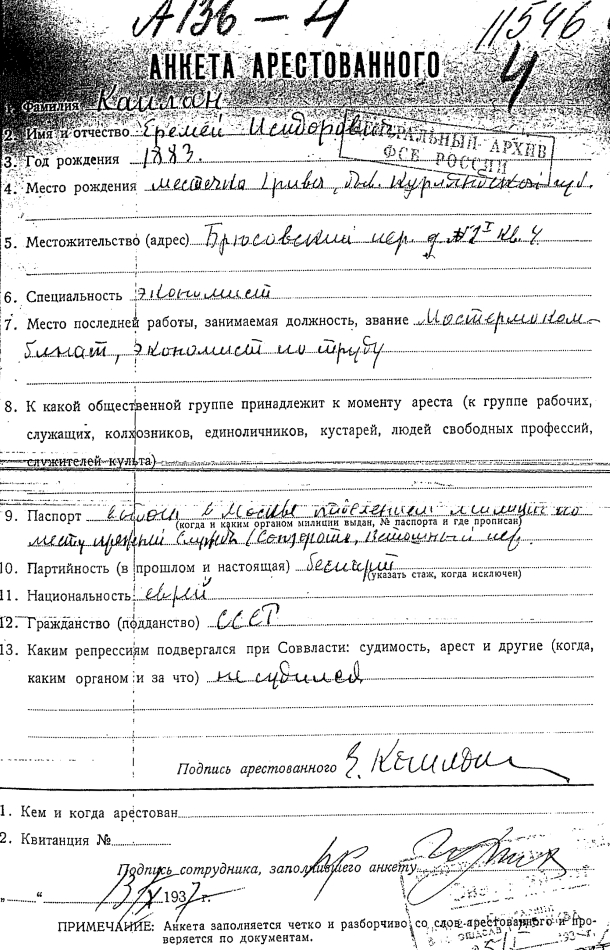 А136-4
11546
4
АНКЕТА АРЕСТОВАННОГО
1. Фамилия Каплан
2. Имя и отчество Еремей Исидорович
ЦЕНТРАЛЬНЫЙ АРХИВ
ФСБ РОССИИ
3. Год рождения 1883.
4. Место рождения местечко Грива, быв. Курляндской губ.
5. Местожительство (адрес) Брюсовский пер. д кв. 4
6. Специальность экономист
7. Место последней работы, занимаемая должность, звание
экономист по труду
8. К какой общественной группе принадлежит к моменту ареста (к группе рабочих,
служащих, колхозников, единоличников, кустарей, людей свободных профессий,
служителей культа)
9. Паспорт выдан в Москве отделением милиции по
(когда и каким органом милиции выдан, № паспорта и где прописан)
месту службы
10. Партийность (в прошлом и настоящая) беспарт
(указать стаж, когда исключен)
11. Национальность еврей
12. Гражданство (подданство) СССР
13. Каким репрессиям подвергался при Соввласти: судимость, арест и другие (когда,
каким органом и за что) не судился
Подпись арестованного Е. Каплан
1. Кем и когда арестован
2. Квитанция №
Подпись сотрудника, заполнившего анкету
„ “ 1937 г.
ПРИМЕЧАНИЕ: Анкета заполняется четко и разборчиво со слов арестованного и про-
веряется по документам.